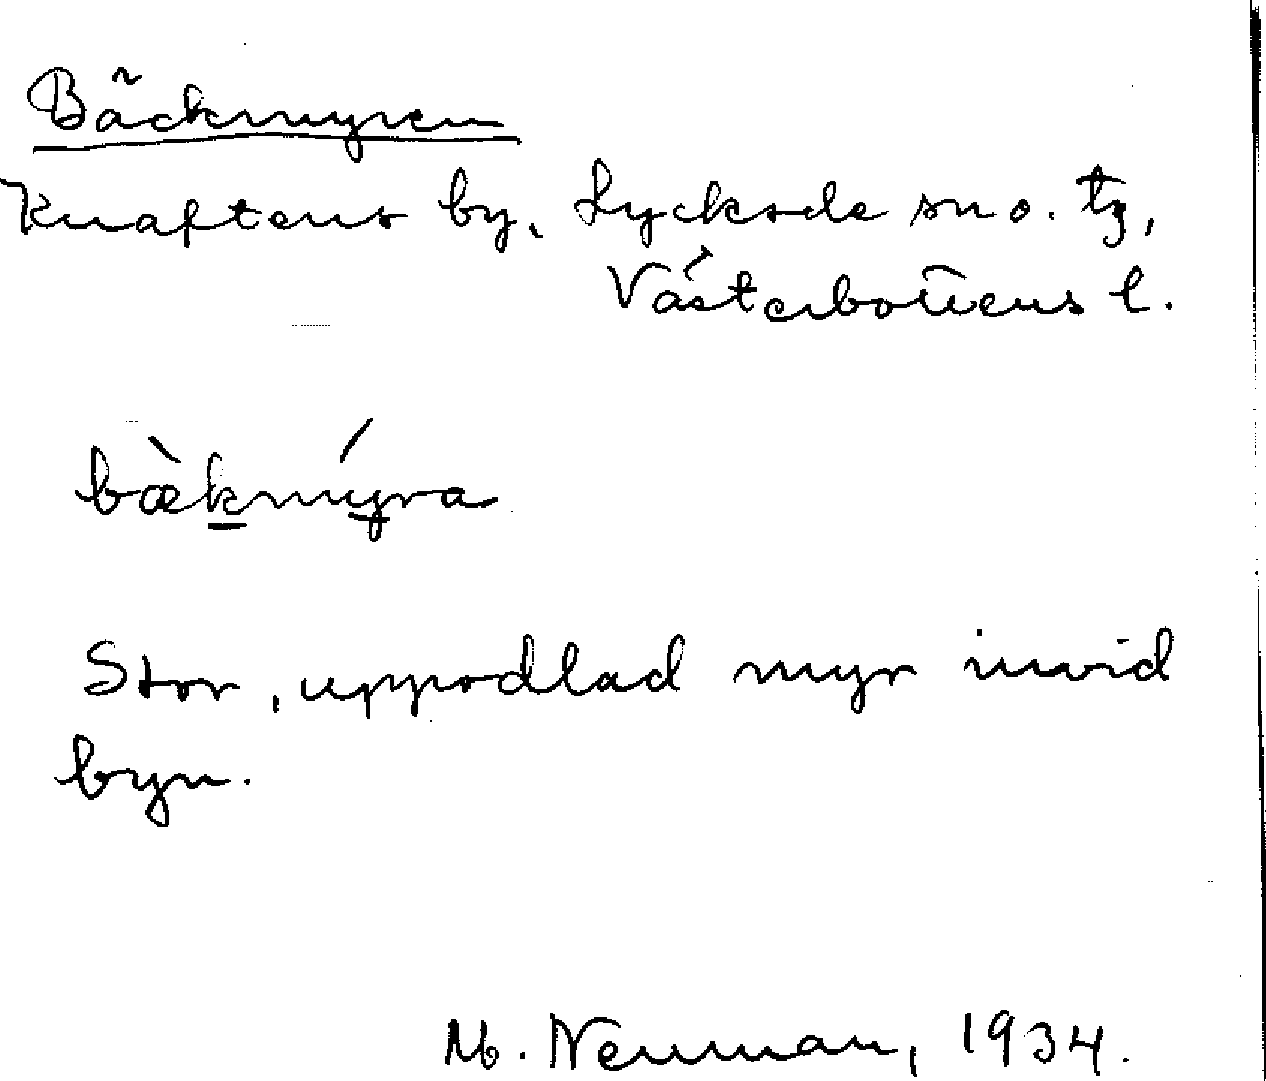 Bäckmyren
Knaftens by, Lycksele sn o. tg,
Västerbottens l.
bæ̀kmýra
Stor, uppodlad myr invid
byn.
M. Neuman, 1934.